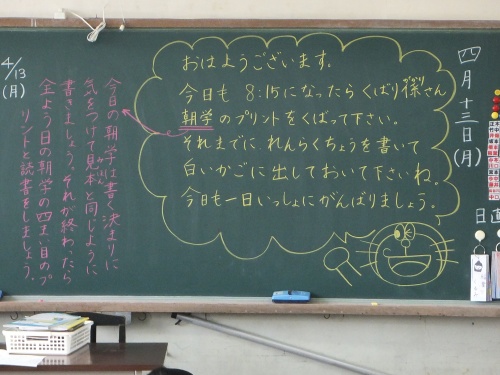 四月十三日(月)
日直
おはようございます。
今日も 8:15になったら くばり係さん
朝学のプリントをくばって下さい。
それまでに、れんらくちょうを書いて
白いかごに出しておいて下さいね。
今日も一日いっしょにがんばりましょう。
今日の朝学は書く決まりに
気をつけて見本と同じように
書きましょう。それが終わったら
金よう日の朝学の四まい目のプ
リントと読書をしましょう。
4/13
(月)